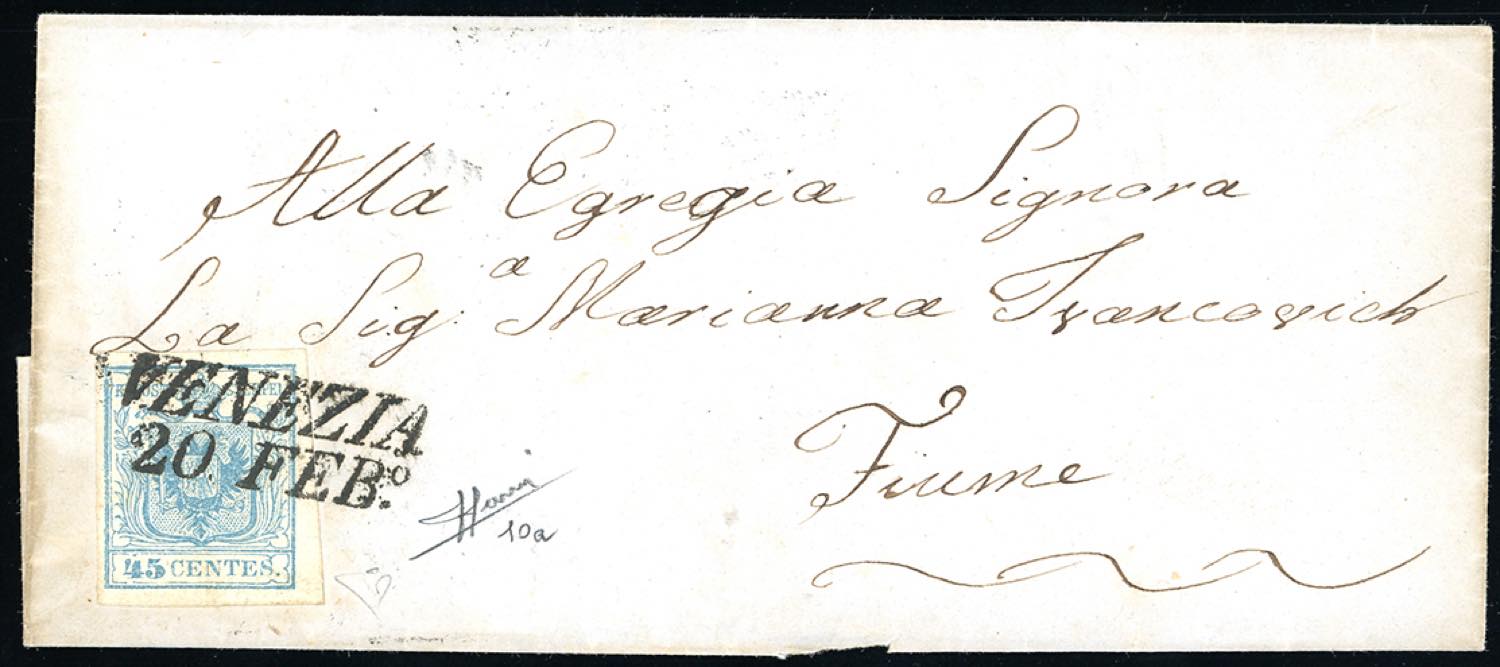 Alla Egregia Signora
La Sig.a Marianna Ivancovich
Fiume
VENEZIA
20 FEB.o
45 CENTES.
10a